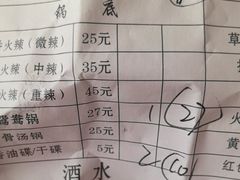 锅底
火辣（微辣） 25元 草
火辣（中辣） 35元
火辣（重辣） 45元
鸳鸯锅 27元 1 (27) 火
骨汤锅 25元
油碟/干碟 5元 2 (10) 黄
酒水 红